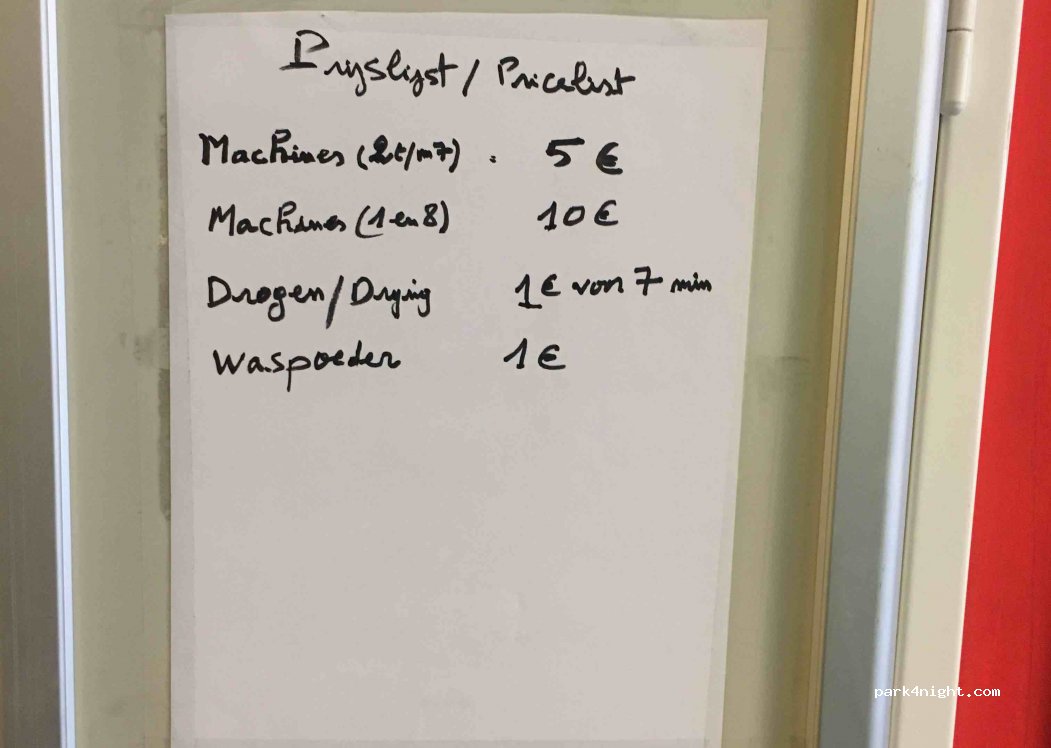 Pryslyst / Pricelist
Machines (2t/m7) : 5 €
Machines (1 en 8) 10 €
Drogen / Drying 1 € von 7 min
Waspoeder 1 €
park4night.com